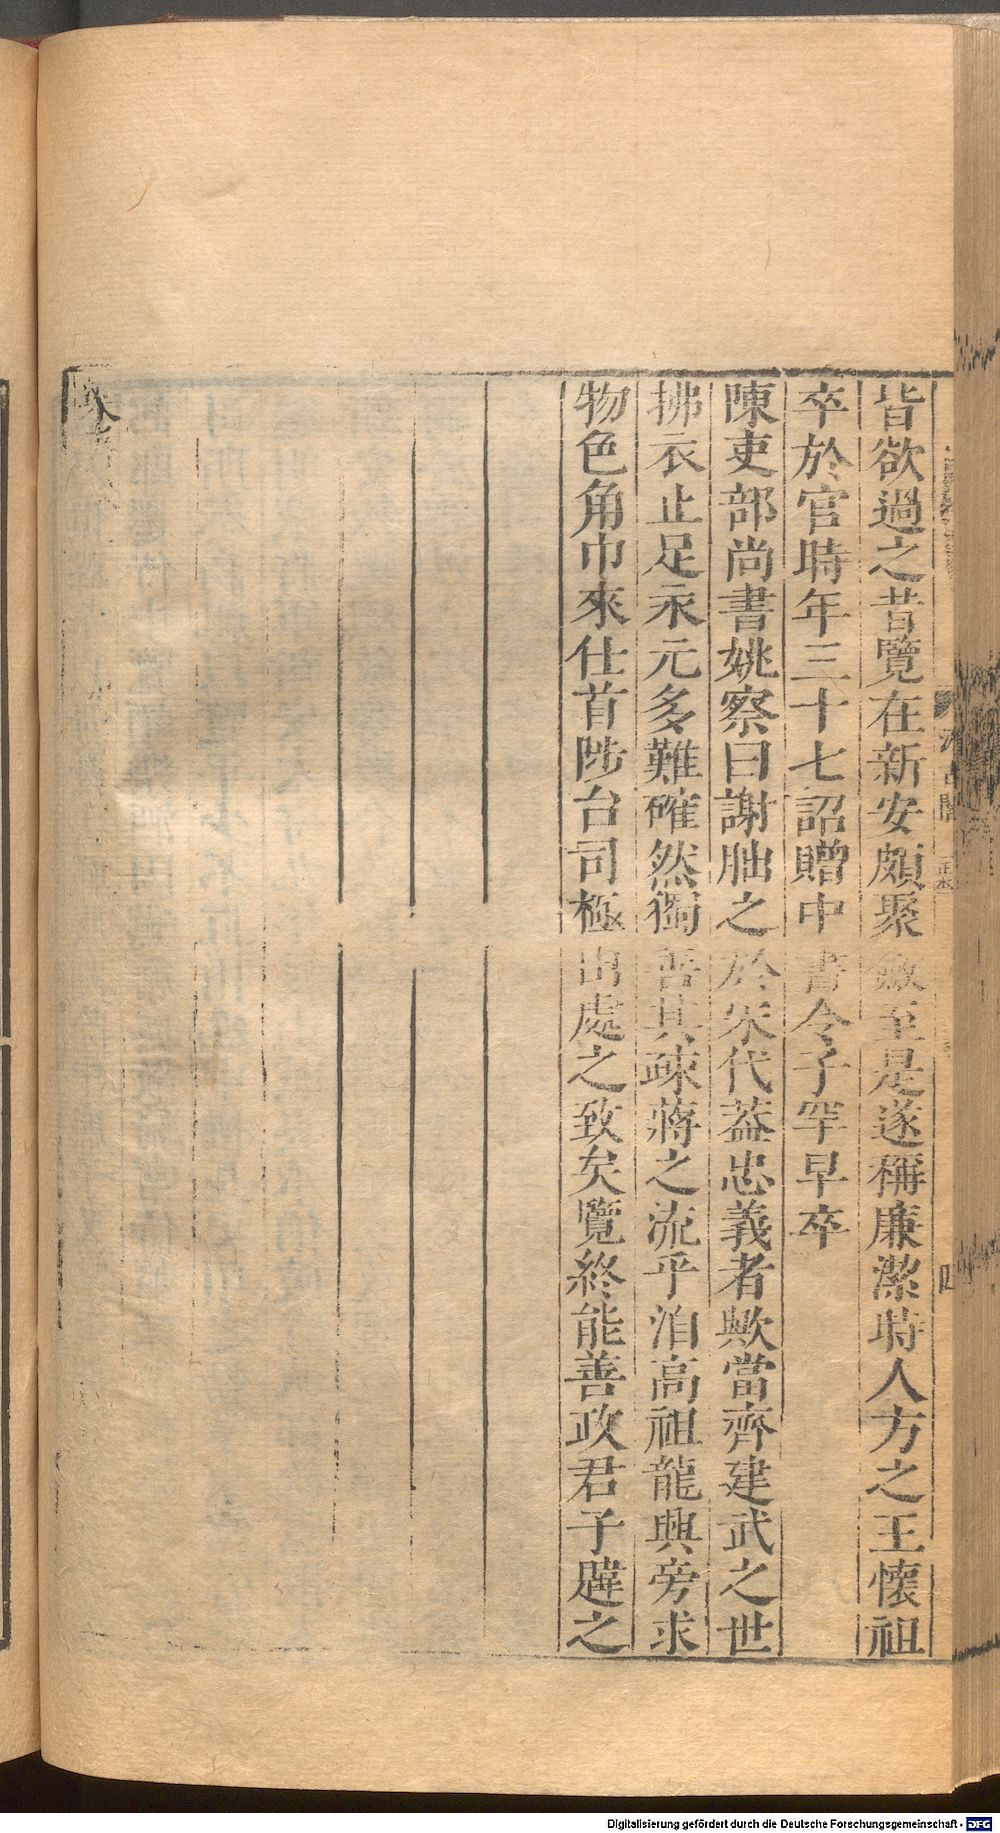 皆欲過之昔覽在新安頗聚斂至是遂稱廉潔時人方之王懷祖
卒於官時年三十七詔贈中書令子罕早卒
陳吏部尚書姚察曰謝朏之於宋代蓋忠義者歟當齊建武之世
拂衣止足永元多難確然獨善其疎蔣之流乎洎高祖龍興旁求
物色角巾來仕首陟台司極出處之致矣覽終能善政君子韙之
四
Digitalisierung gefördert durch die Deutsche Forschungsgemeinschaft - DFG